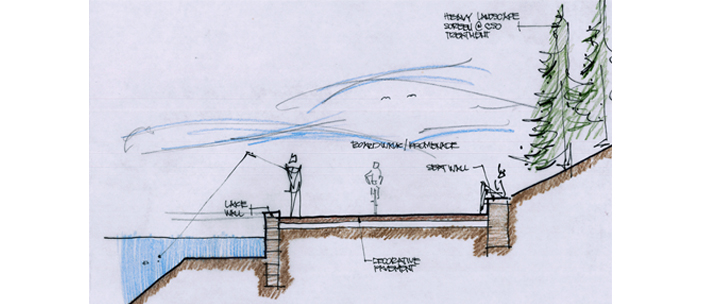 HEAVY LANDSCAPE
SCREEN @ CSO
TREATMENT
BOARDWALK/PROMENADE
SEAT WALL
LAKE
WALL
DECORATIVE
PAVEMENT